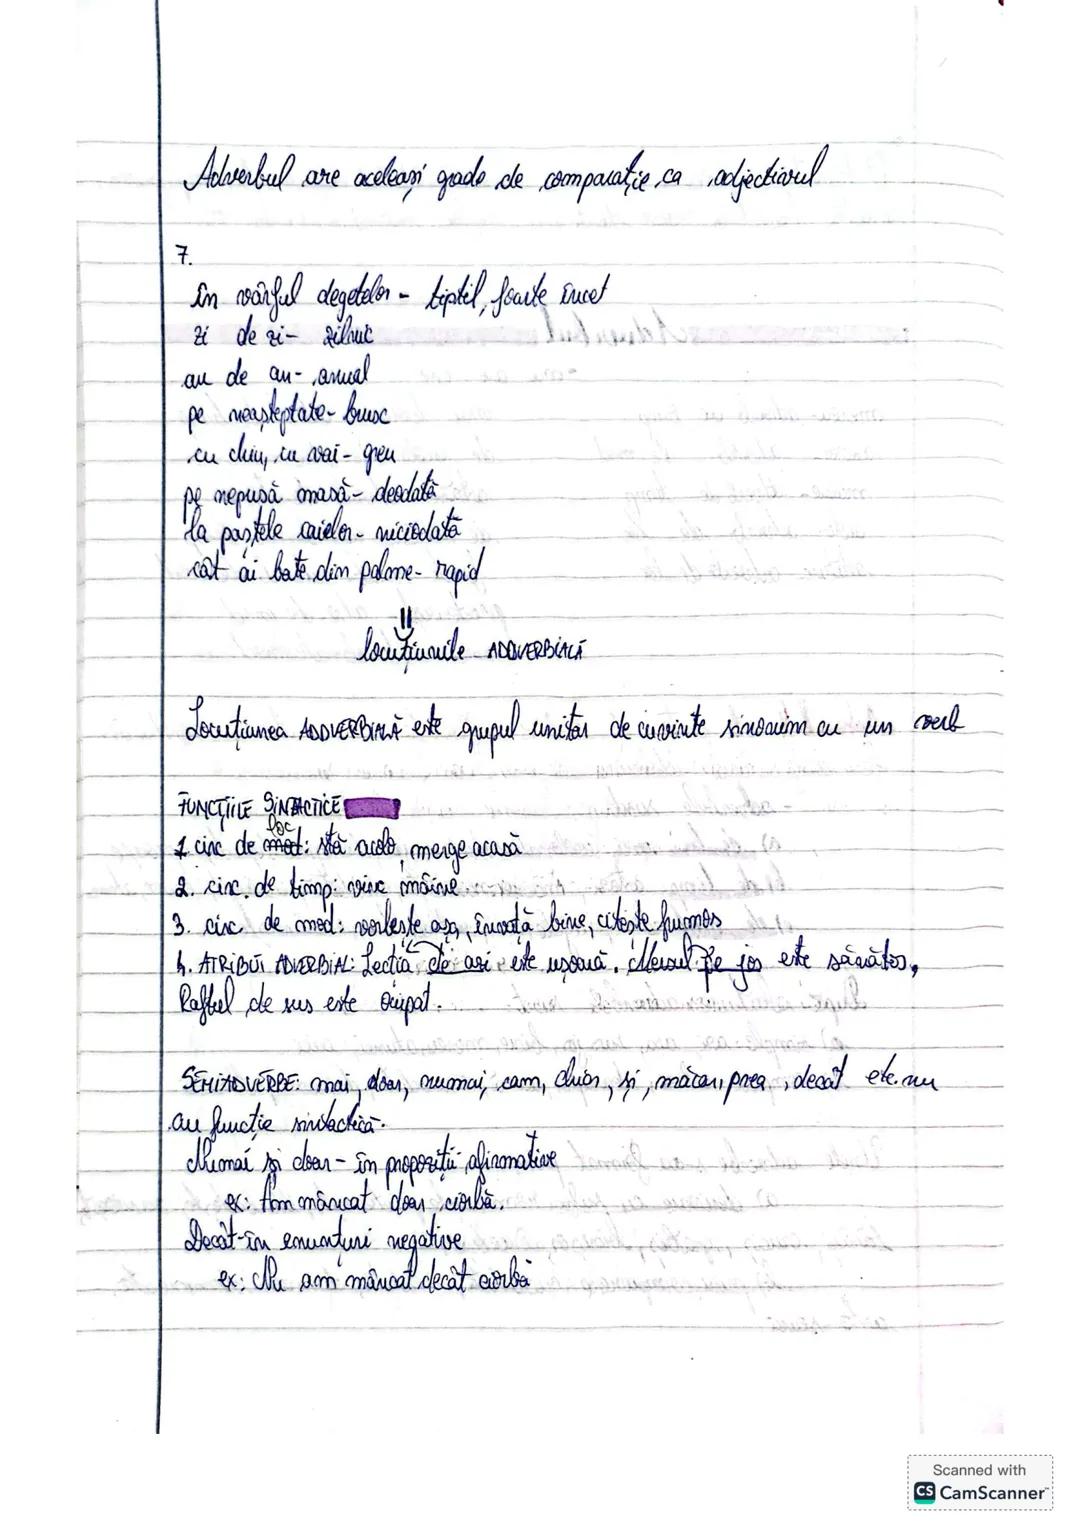 Adverbul are aceleași grade de comparație ca adjectivul
7.
în vârful degetelor - tiptil, foarte încet
zi de zi - zilnic
an de an - anual
pe neașteptate - brusc
cu chiu, cu vai - greu
pe nepusă masă - deodată
la paștele cailor - niciodată
cât ai bate din palme - rapid
locuțiunile ADDVERBIALĂ
Locuțiunea ADDVERBIALĂ este grupul unitar de cuvinte sinonim cu un verb
FUNCȚIILE SINTACTICE
loc
1. circ de mod: stă acolo, merge acasă
2. circ. de timp: vine mâine
3. circ de mod: vorbește așa, învață bine, citește frumos
4. ATRIBUT ADVERBIAL: Lecția de azi este ușoară. Mersul pe jos este sănătos,
Raftul de sus este ocupat.
SEMIADVERBE: mai, doar, numai, cam, chiar, și, măcar, prea, decât etc. nu
au funcție sintactică.
Numai și doar - în propoziții afirmative
ex: Am mâncat doar ciorbă.
Decât - în enunțuri negative
ex: Nu am mâncat decât ciorbă
Scanned with
CS CamScanner